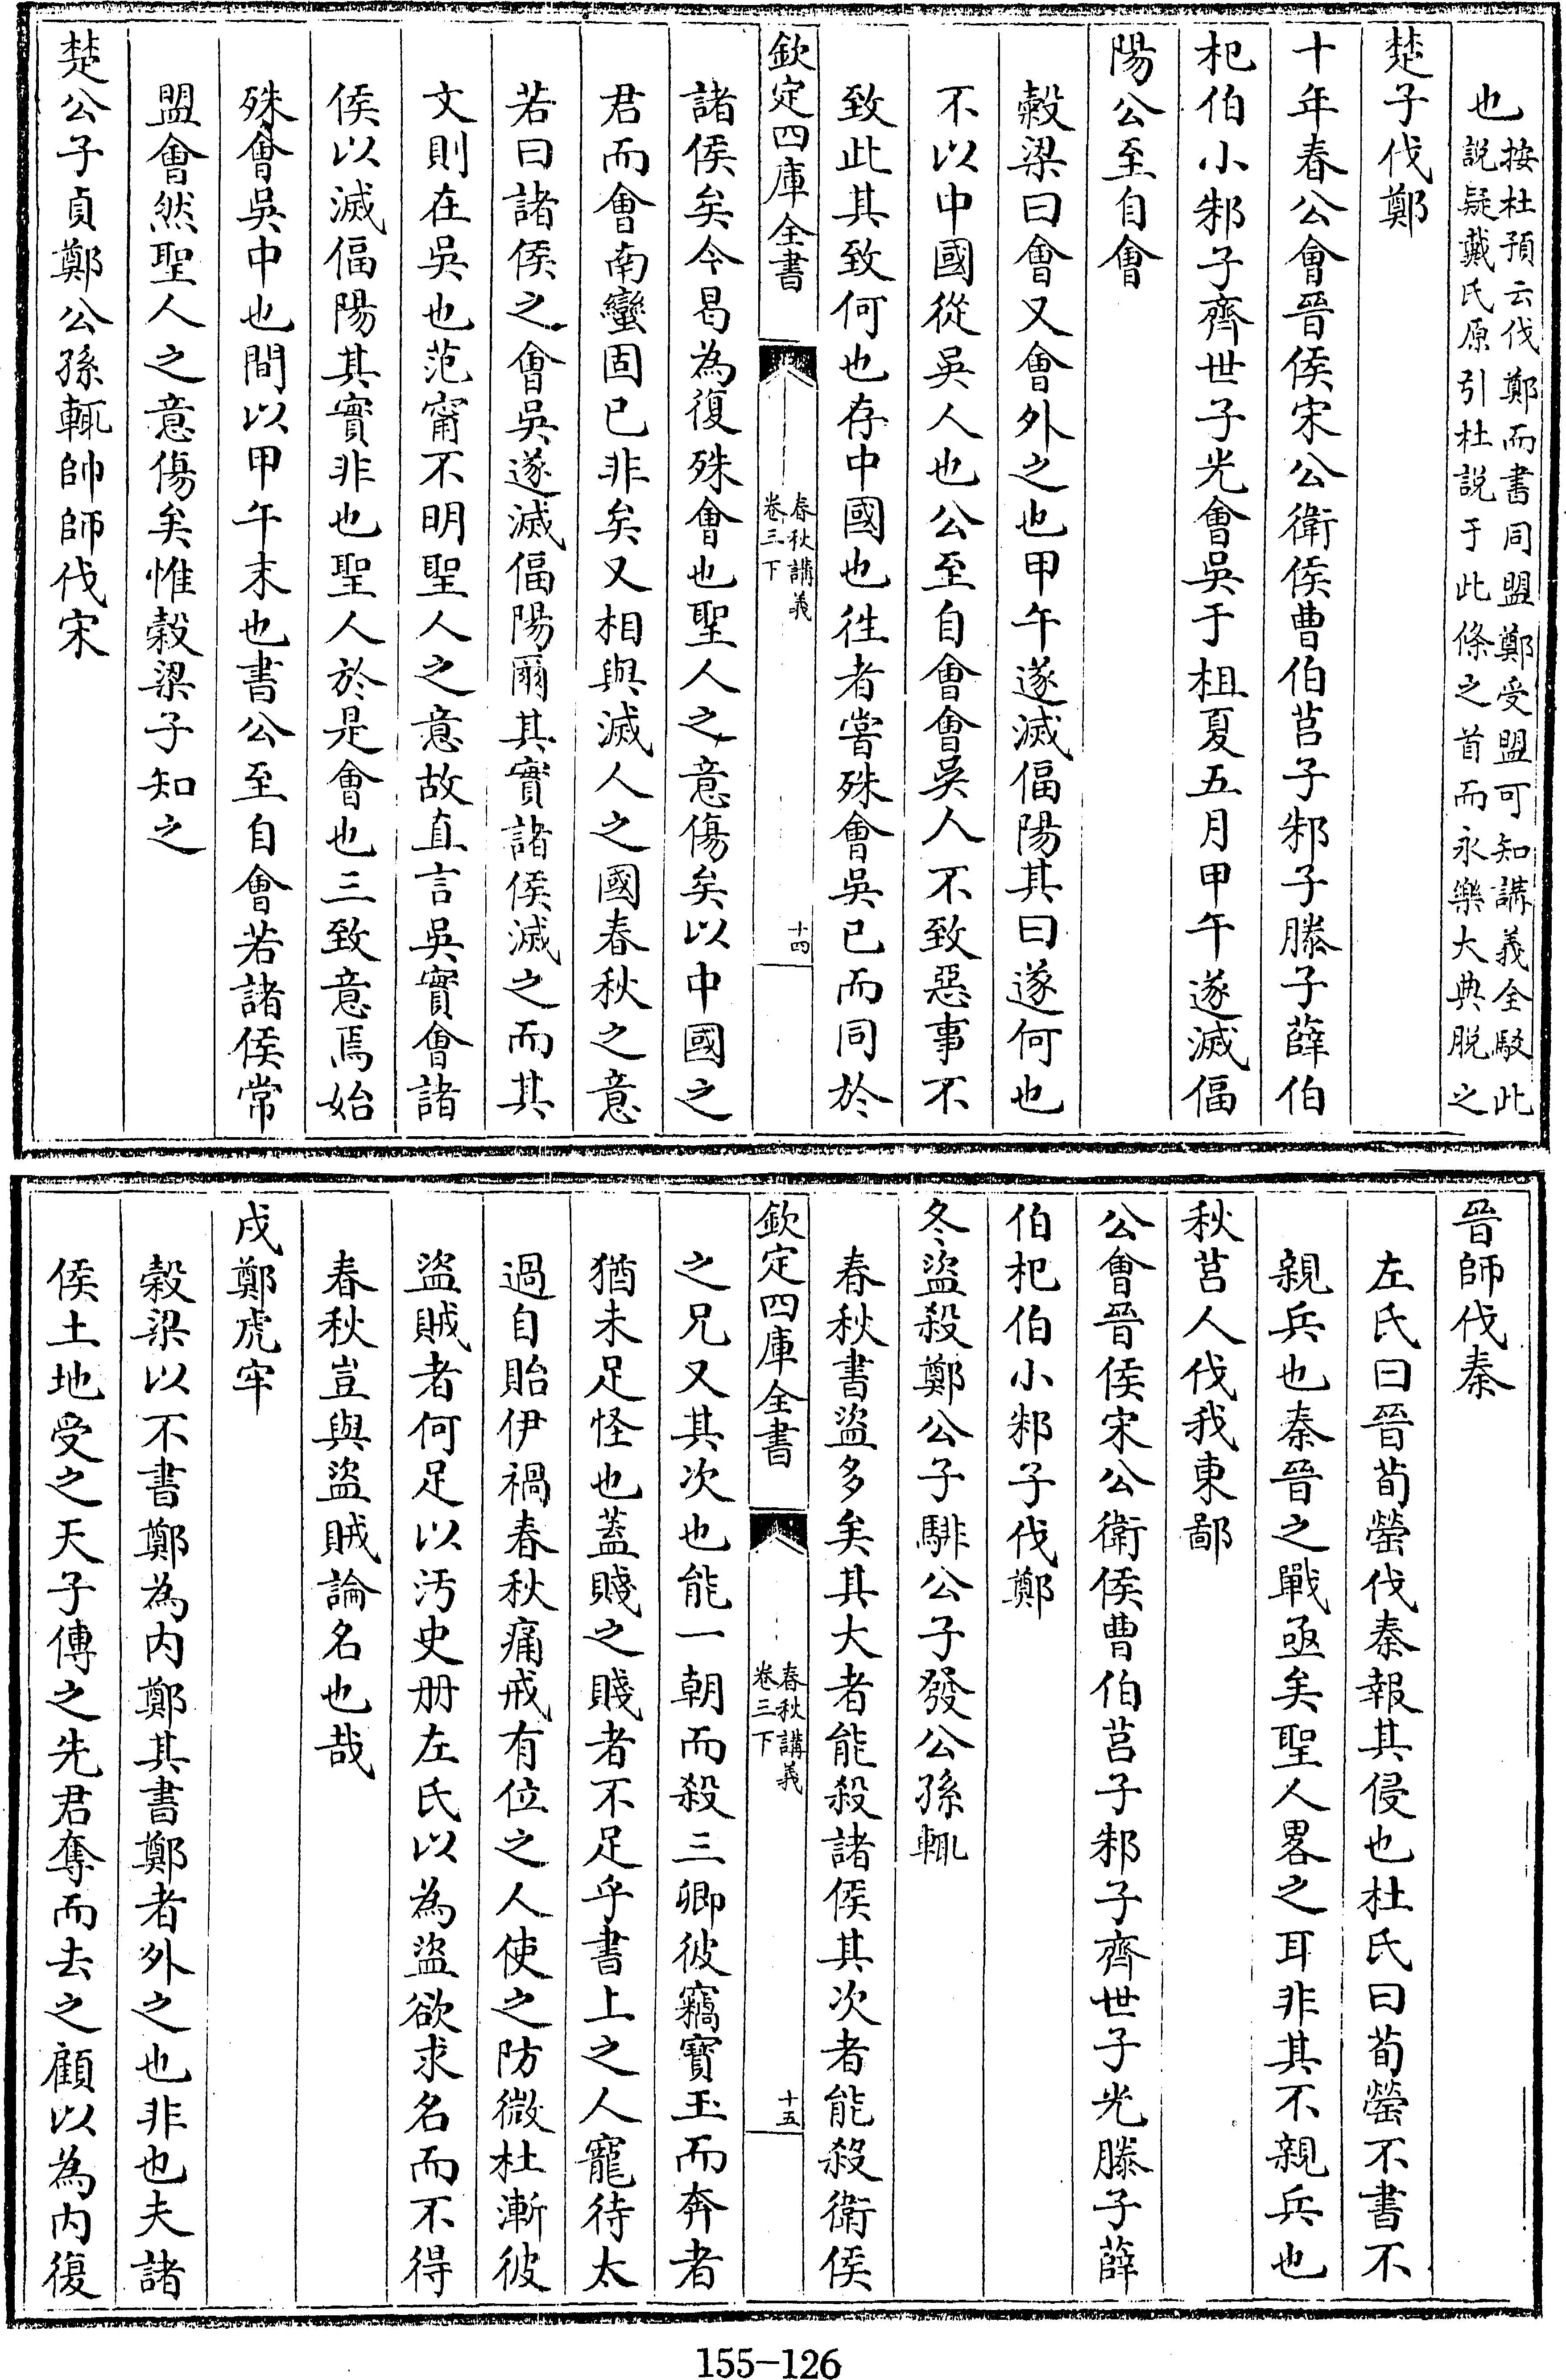 也按杜預云伐鄭而書同盟鄭受盟可知講義全駁此
說疑戴氏原引杜說于此條之首而永樂大典脫之
楚子伐鄭
十年春公會晉侯宋公衛侯曹伯莒子邾子滕子薛伯
杞伯小邾子齊世子光會吳于柤夏五月甲午遂滅偪
陽公至自會
穀梁曰會又會外之也甲午遂滅偪陽其曰遂何也
不以中國從吳人也公至自會會吳人不致惡事不
致此其致何也存中國也徃者嘗殊會吳已而同於
欽定四庫全書
春秋講義
卷三下
十四
諸侯矣今曷為復殊會也聖人之意傷矣以中國之
君而會南蠻固已非矣又相與滅人之國春秋之意
若曰諸侯之會吳遂滅偪陽爾其實諸侯滅之而其
文則在吳也范甯不明聖人之意故直言吳實會諸
侯以滅偪陽其實非也聖人於是會也三致意焉始
殊會吳中也間以甲午末也書公至自會若諸侯常
盟會然聖人之意傷矣惟穀梁子知之
楚公子貞鄭公孫輒帥師伐宋
晉師伐秦
左氏曰晉荀罃伐秦報其侵也杜氏曰荀罃不書不
親兵也秦晉之戰亟矣聖人畧之耳非其不親兵也
秋莒人伐我東鄙
公會晉侯宋公衛侯曹伯莒子邾子齊世子光滕子薛
伯杞伯小邾子伐鄭
冬盜殺鄭公子騑公子發公孫輒
春秋書盜多矣其大者能殺諸侯其次者能殺衛侯
欽定四庫全書
春秋講義
卷三下
十五
之兄又其次也能一朝而殺三卿彼竊寳玉而奔者
猶未足怪也蓋賤之賤者不足乎書上之人寵待太
過自貽伊禍春秋痛戒有位之人使之防微杜漸彼
盜賊者何足以汚史册左氏以為盜欲求名而不得
春秋豈與盜賊論名也哉
戍鄭虎牢
穀梁以不書鄭為内鄭其書鄭者外之也非也夫諸
侯土地受之天子傳之先君奪而去之顧以為内復
155-126